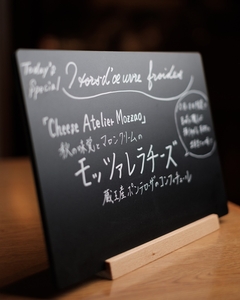 Today's
Special
Hors d'œuvre froides
「Cheese Atelier Mozzao」
秋の味覚とマロンクリームの
モッツァレラチーズ
蔵王産ボンテローザのコンフィチュール